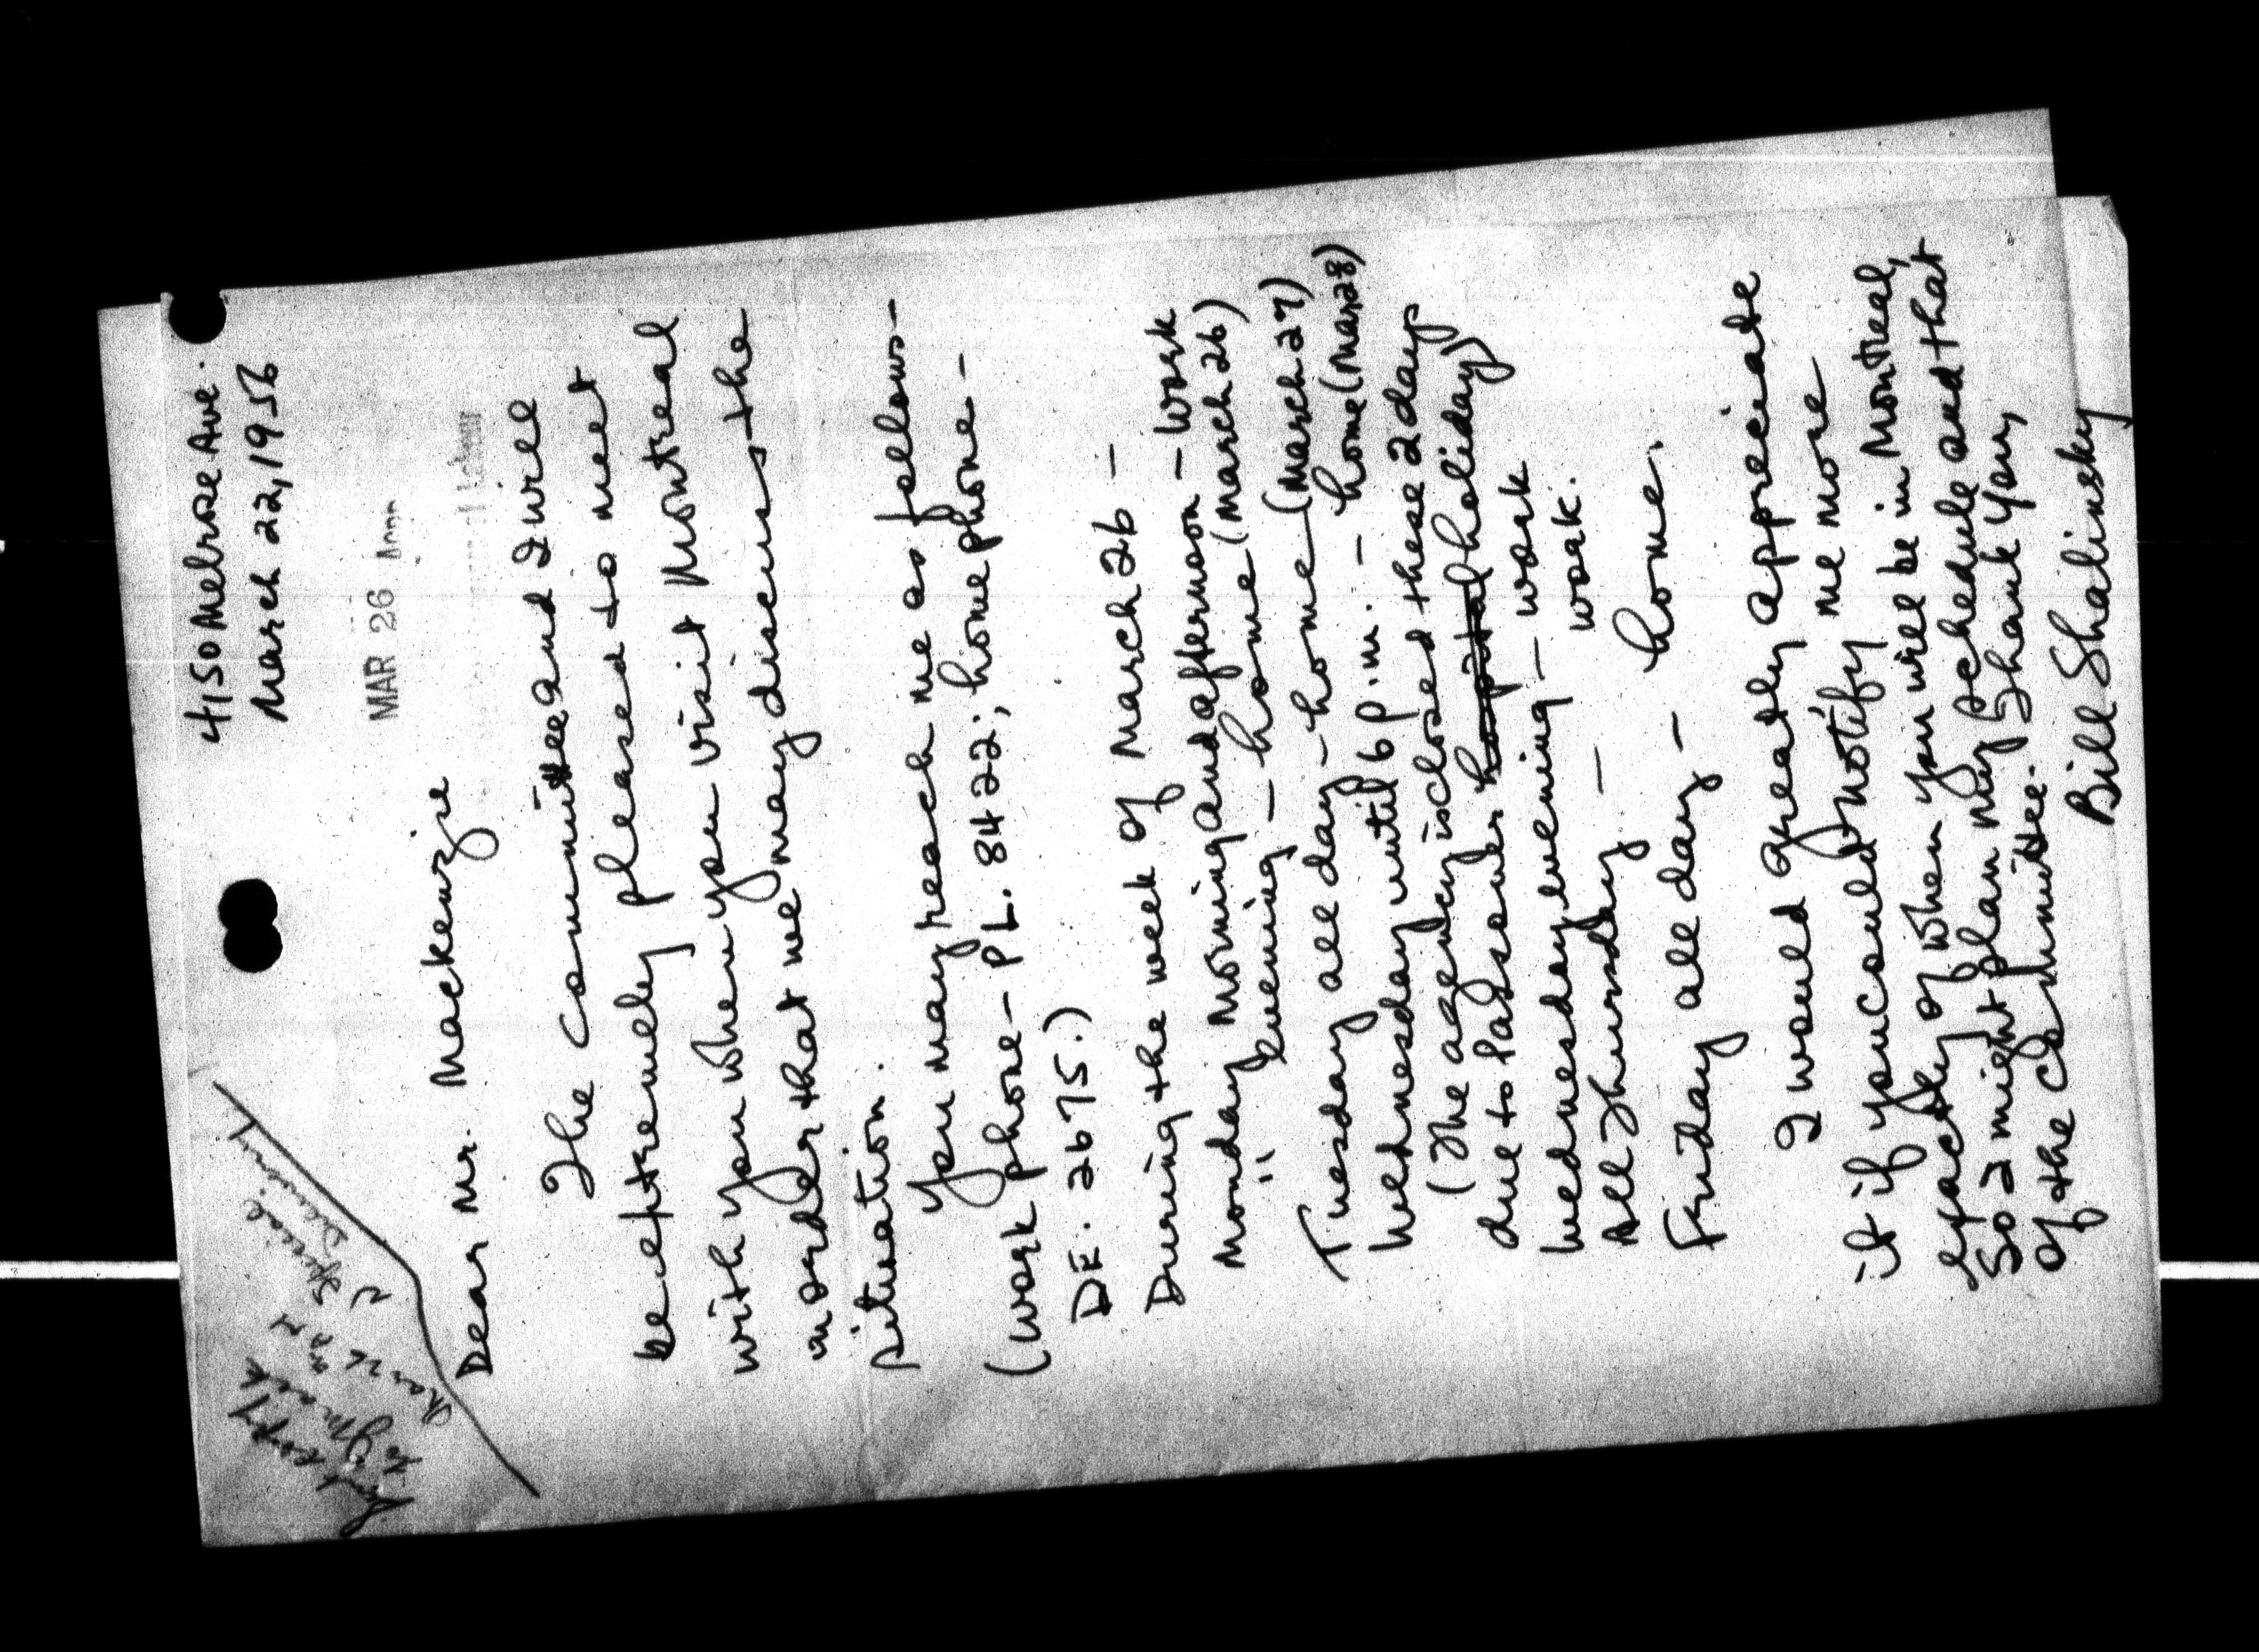 4150 Melrose Ave.
March 22, 1956
MAR 26
Sent copy
to
March
Special
Dear Mr. Mackenzie
The Committee and I will
be extremely pleased to meet
with you when you visit Montreal
in order that we may discuss the
situation.
You may reach me as follows-
(work phone - PL. 8422; home phone -
DE. 2675.)
During the week of March 26 -
Monday morning and afternoon - work
" evening - home (March 26)
Tuesday all day - home (March 27)
Wednesday until 6 p.m. - home (Mar 28)
(The agency is closed these 2 days
due to Passover holiday)
Wednesday evening - work
All Thursday - work.
Friday all day - home.
I would greatly appreciate
it if you could notify me more
exactly of when you will be in Montreal,
so I might plan my schedule and that
of the Committee. Thank you,
Bill Shalinsky